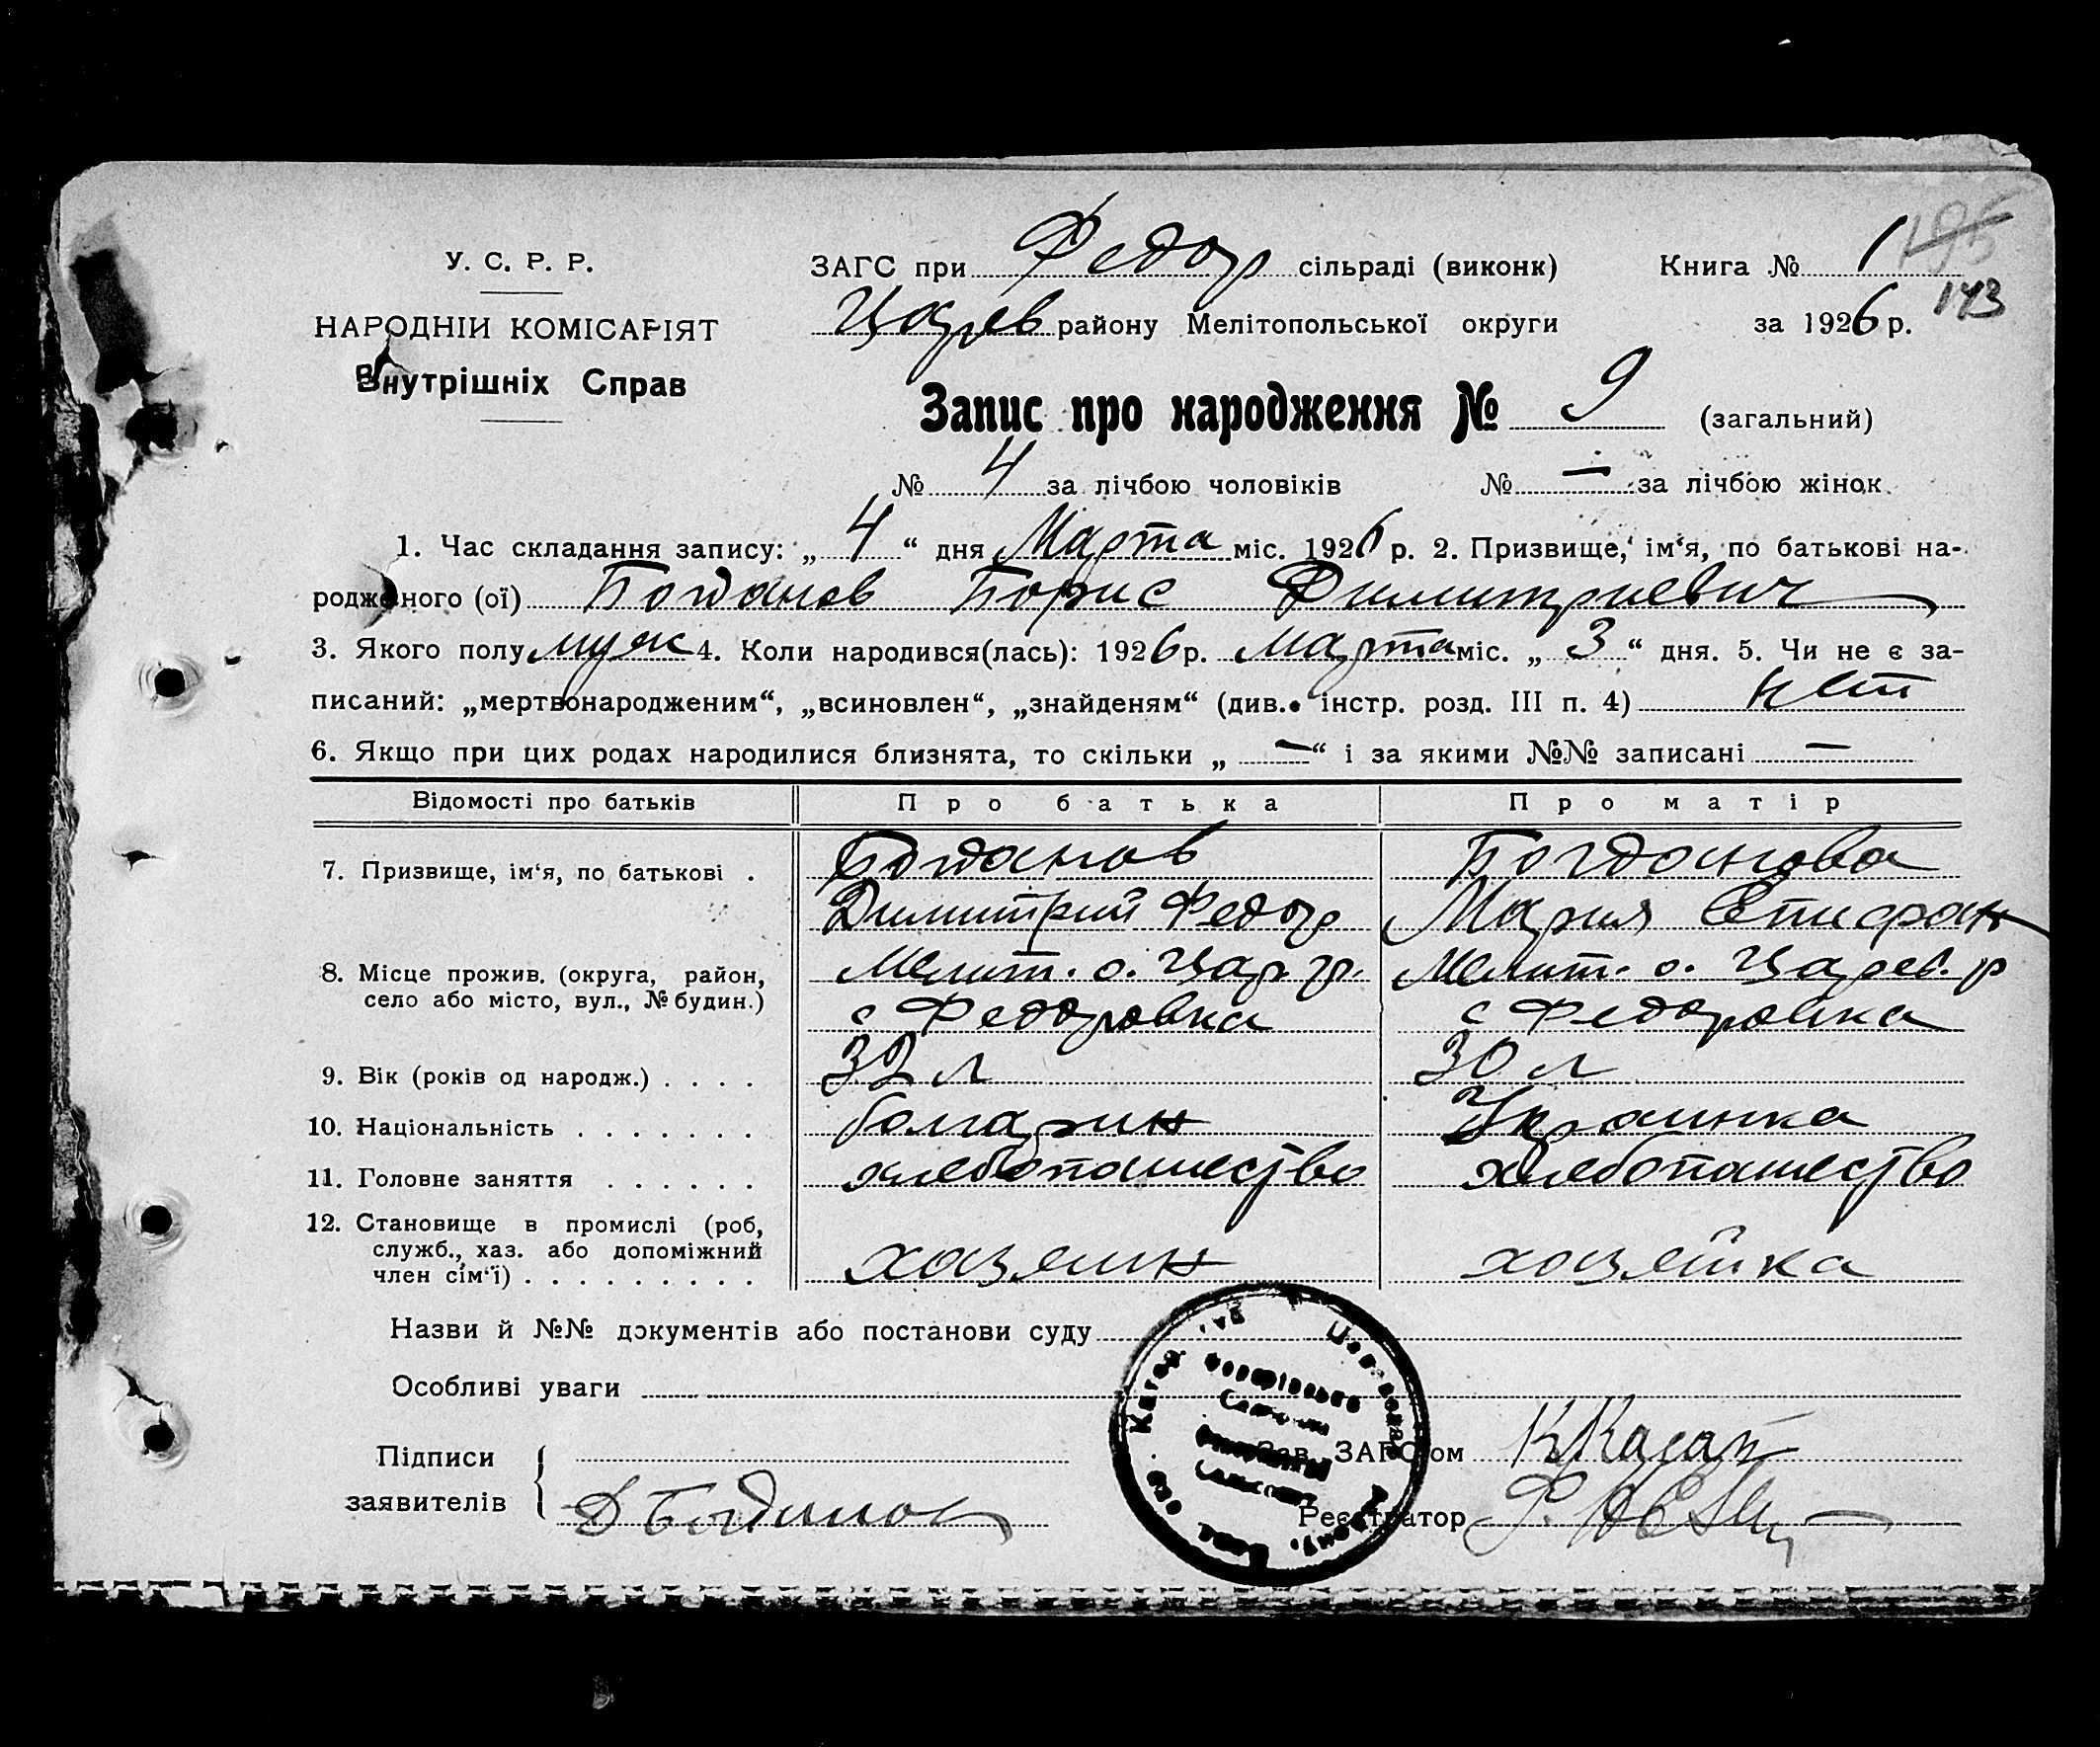 195
У. С. Р. Р.
ЗАГС при Федор сільраді (виконк) Книга № 1
143
НАРОДНІЙ КОМІСАРІЯТ
Царев району Мелітопольської округи за 1926 р.
Внутрішніх Справ
Запис про народження № 9 (загальний)
№ 4 за лічбою чоловіків № — за лічбою жінок
1. Час складання запису: „ 4 “ дня Марта міс. 1926 р. 2. Призвище, ім‘я, по батькові на-
родженого (ої) Богданов Борис Димитриевич
3. Якого полу муж 4. Коли народився(лась): 1926 р. Марта міс. „ 3 “ дня. 5. Чи не є за-
писаний: „мертвонародженим“, „всиновлен“, „знайденям“ (див. інстр. розд. III п. 4) нет
6. Якщо при цих родах народилися близнята, то скільки „ — “ і за якими №№ записані —
Відомості про батьків Про батька Про матір
7. Призвище, ім‘я, по батькові . Богданов Богданова
Димитрий Федор Мария Епифан
8. Місце прожив. (округа, район, Мелит. о. Цар. р. Мелит. о. Царев. р
село або місто, вул., № будин.) с Федоровка с Федоровка
9. Вік (років од народж.) . . . . 32 л 30 л
10. Національність . . . . . . . болгарин Украинка
11. Головне заняття . . . . . . хлебопашество хлебопашество
12. Становище в промислі (роб,
служб., хаз. або допоміжний
член сім‘ї) . . . . . . . . . хозяин хозяйка
Назви й №№ документів або постанови суду
Особливі уваги
Підписи
Зав. ЗАГС‘ом
заявителів Д Богданов
Реєстратор